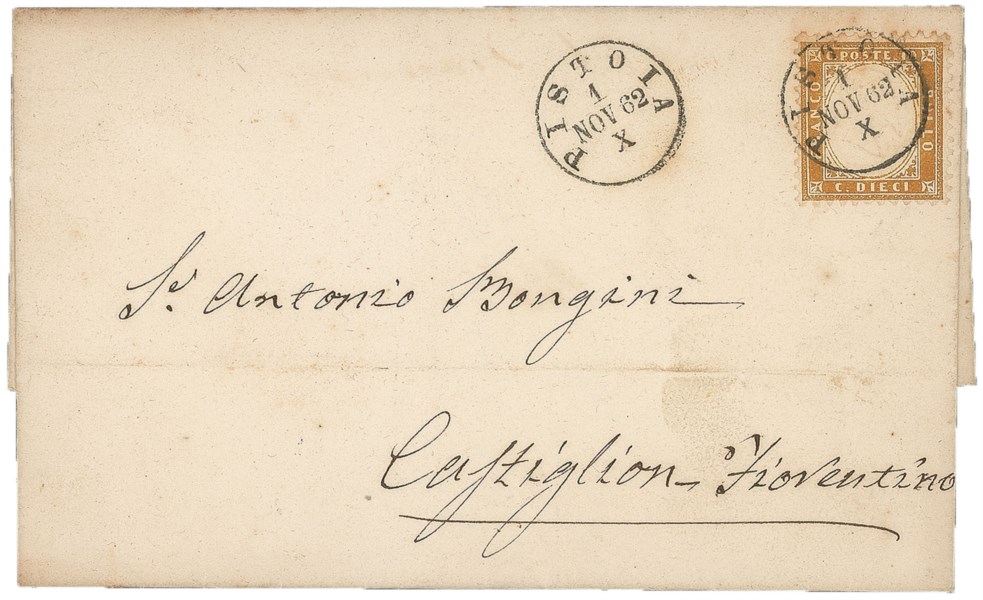 PISTOIA
1
NOV 62
X
PISTOIA
1
NOV 62
X
C. POSTE 10
FRANCO
BOLLO
C. DIECI
Sr. Antonio Bongini
Castiglion Fiorentino